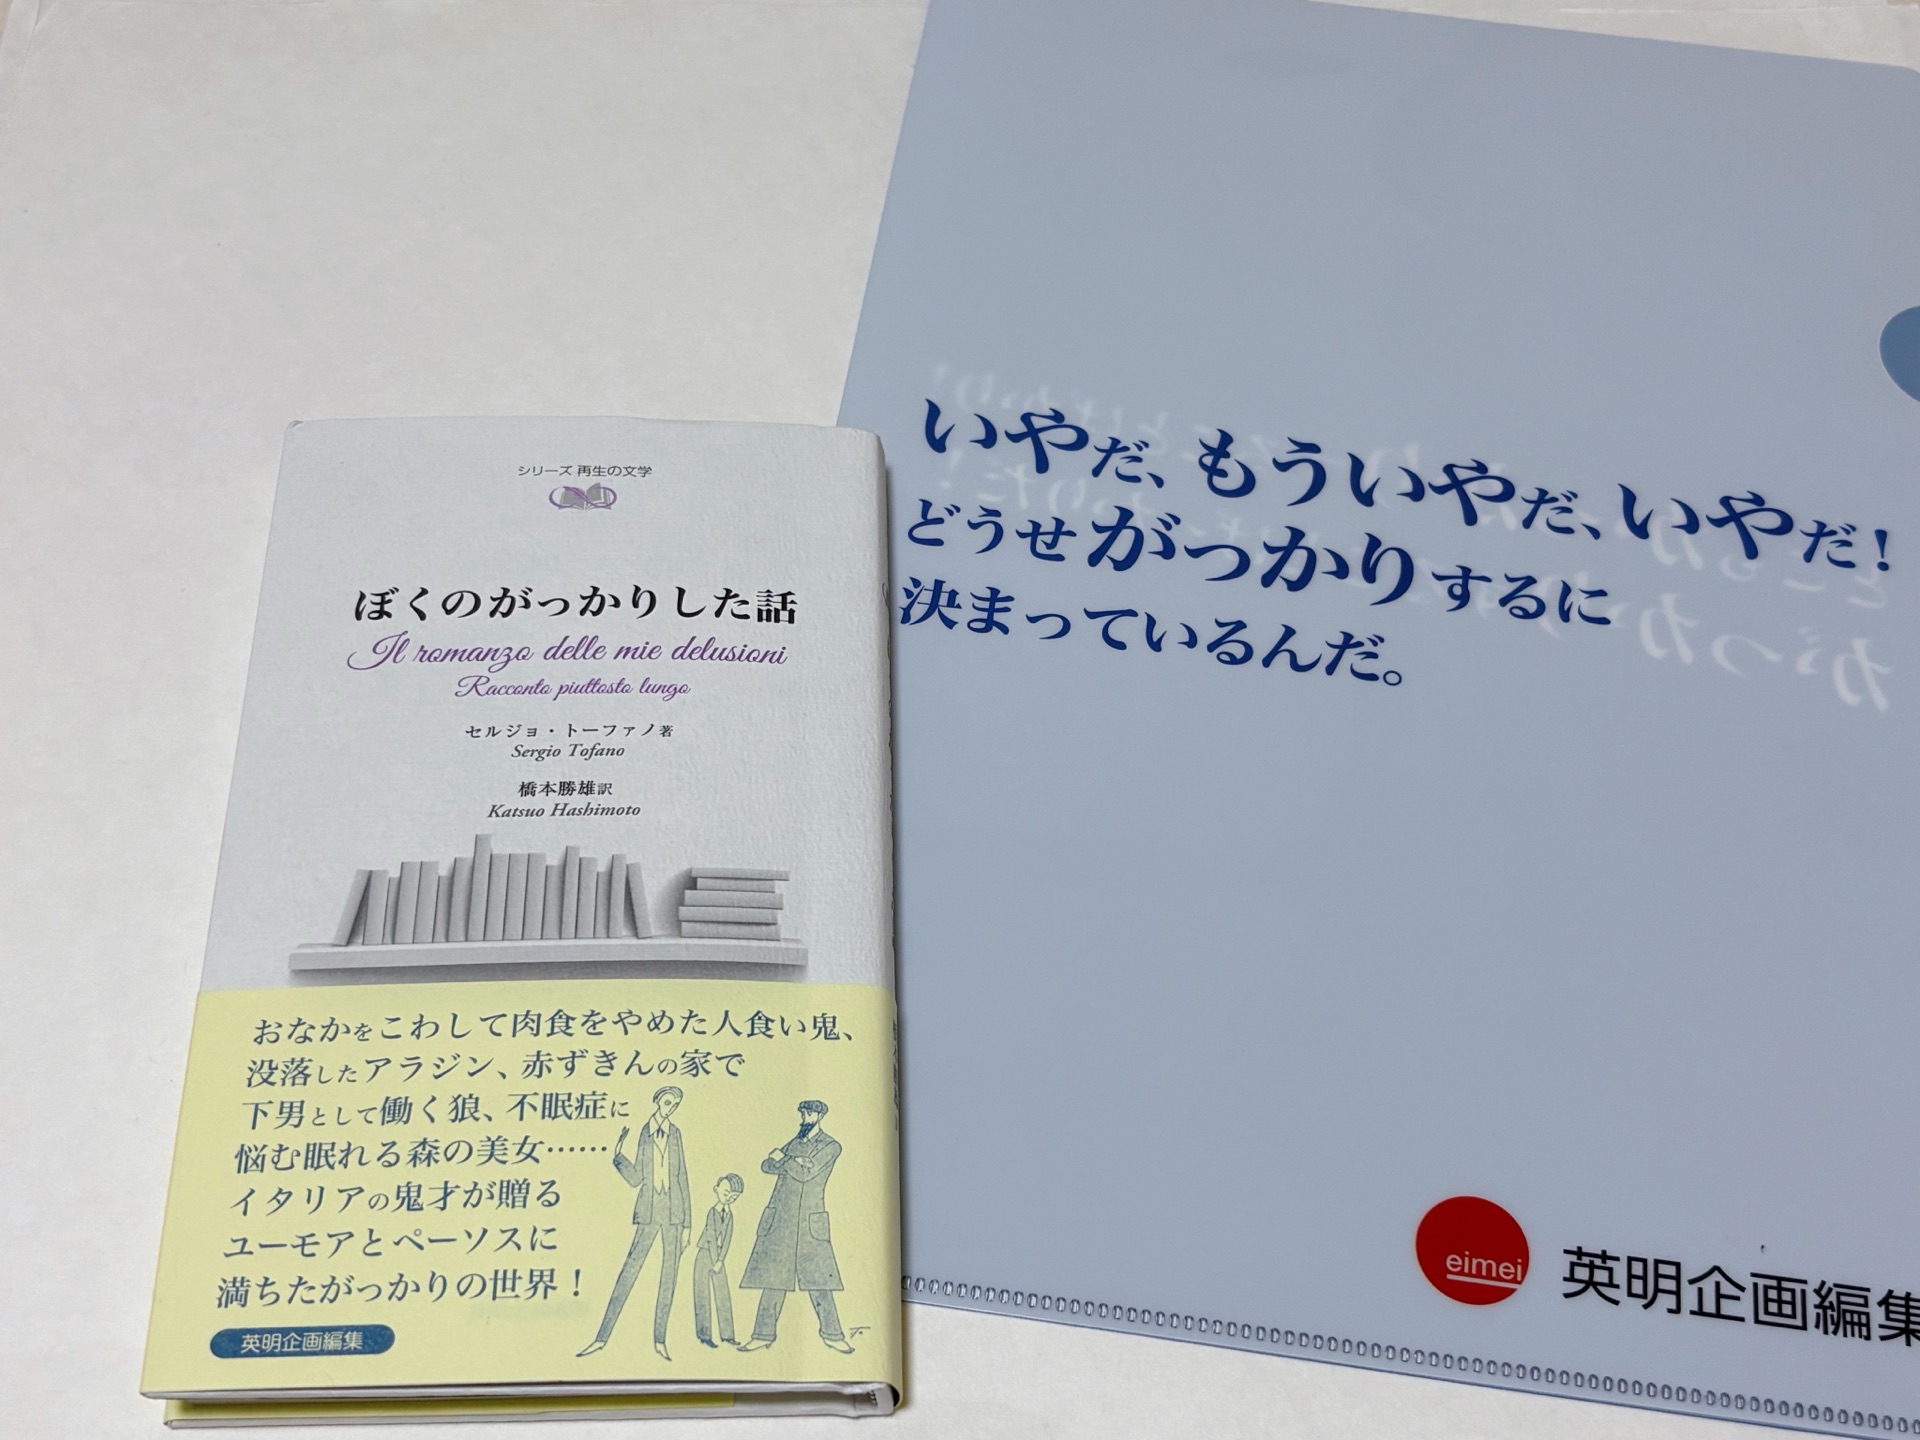 シリーズ 再生の文学
ぼくのがっかりした話
Il romanzo delle mie delusioni
Racconto piuttosto lungo
セルジョ・トーファノ著
Sergio Tofano
橋本勝雄訳
Katsuo Hashimoto
おなかをこわして肉食をやめた人食い鬼、
没落したアラジン、赤ずきんの家で
下男として働く狼、不眠症に
悩む眠れる森の美女……
イタリアの鬼才が贈る
ユーモアとペーソスに
満ちたがっかりの世界！
英明企画編集
いやだ、もういやだ、いやだ！
どうせがっかりするに
決まっているんだ。
eimei
英明企画編集